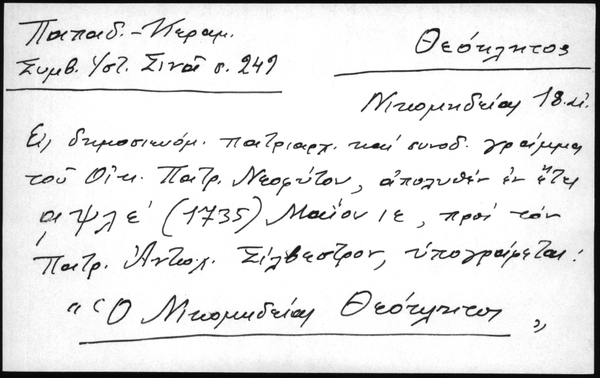 Παπαδ.-Κεραμ.
Συμβ. Ἱστ. Σινᾶ σ. 249
Θεόκλητος
Νικομηδείας 18 αἰ.
Εἰς δημοσιευόμ. πατριαρχ. καί συνοδ. γράμμα
τοῦ Οἰκ. Πατρ. Νεοφύτου, ἀπολυθέν ἐν ἔτει
͵αψλε΄ (1735) Μαΐου ιε, πρός τόν
Πατρ. Ἀντιοχ. Σίλβεστρον, ὑπογράφεται:
"Ὁ Νικομηδείας Θεόκλητος"